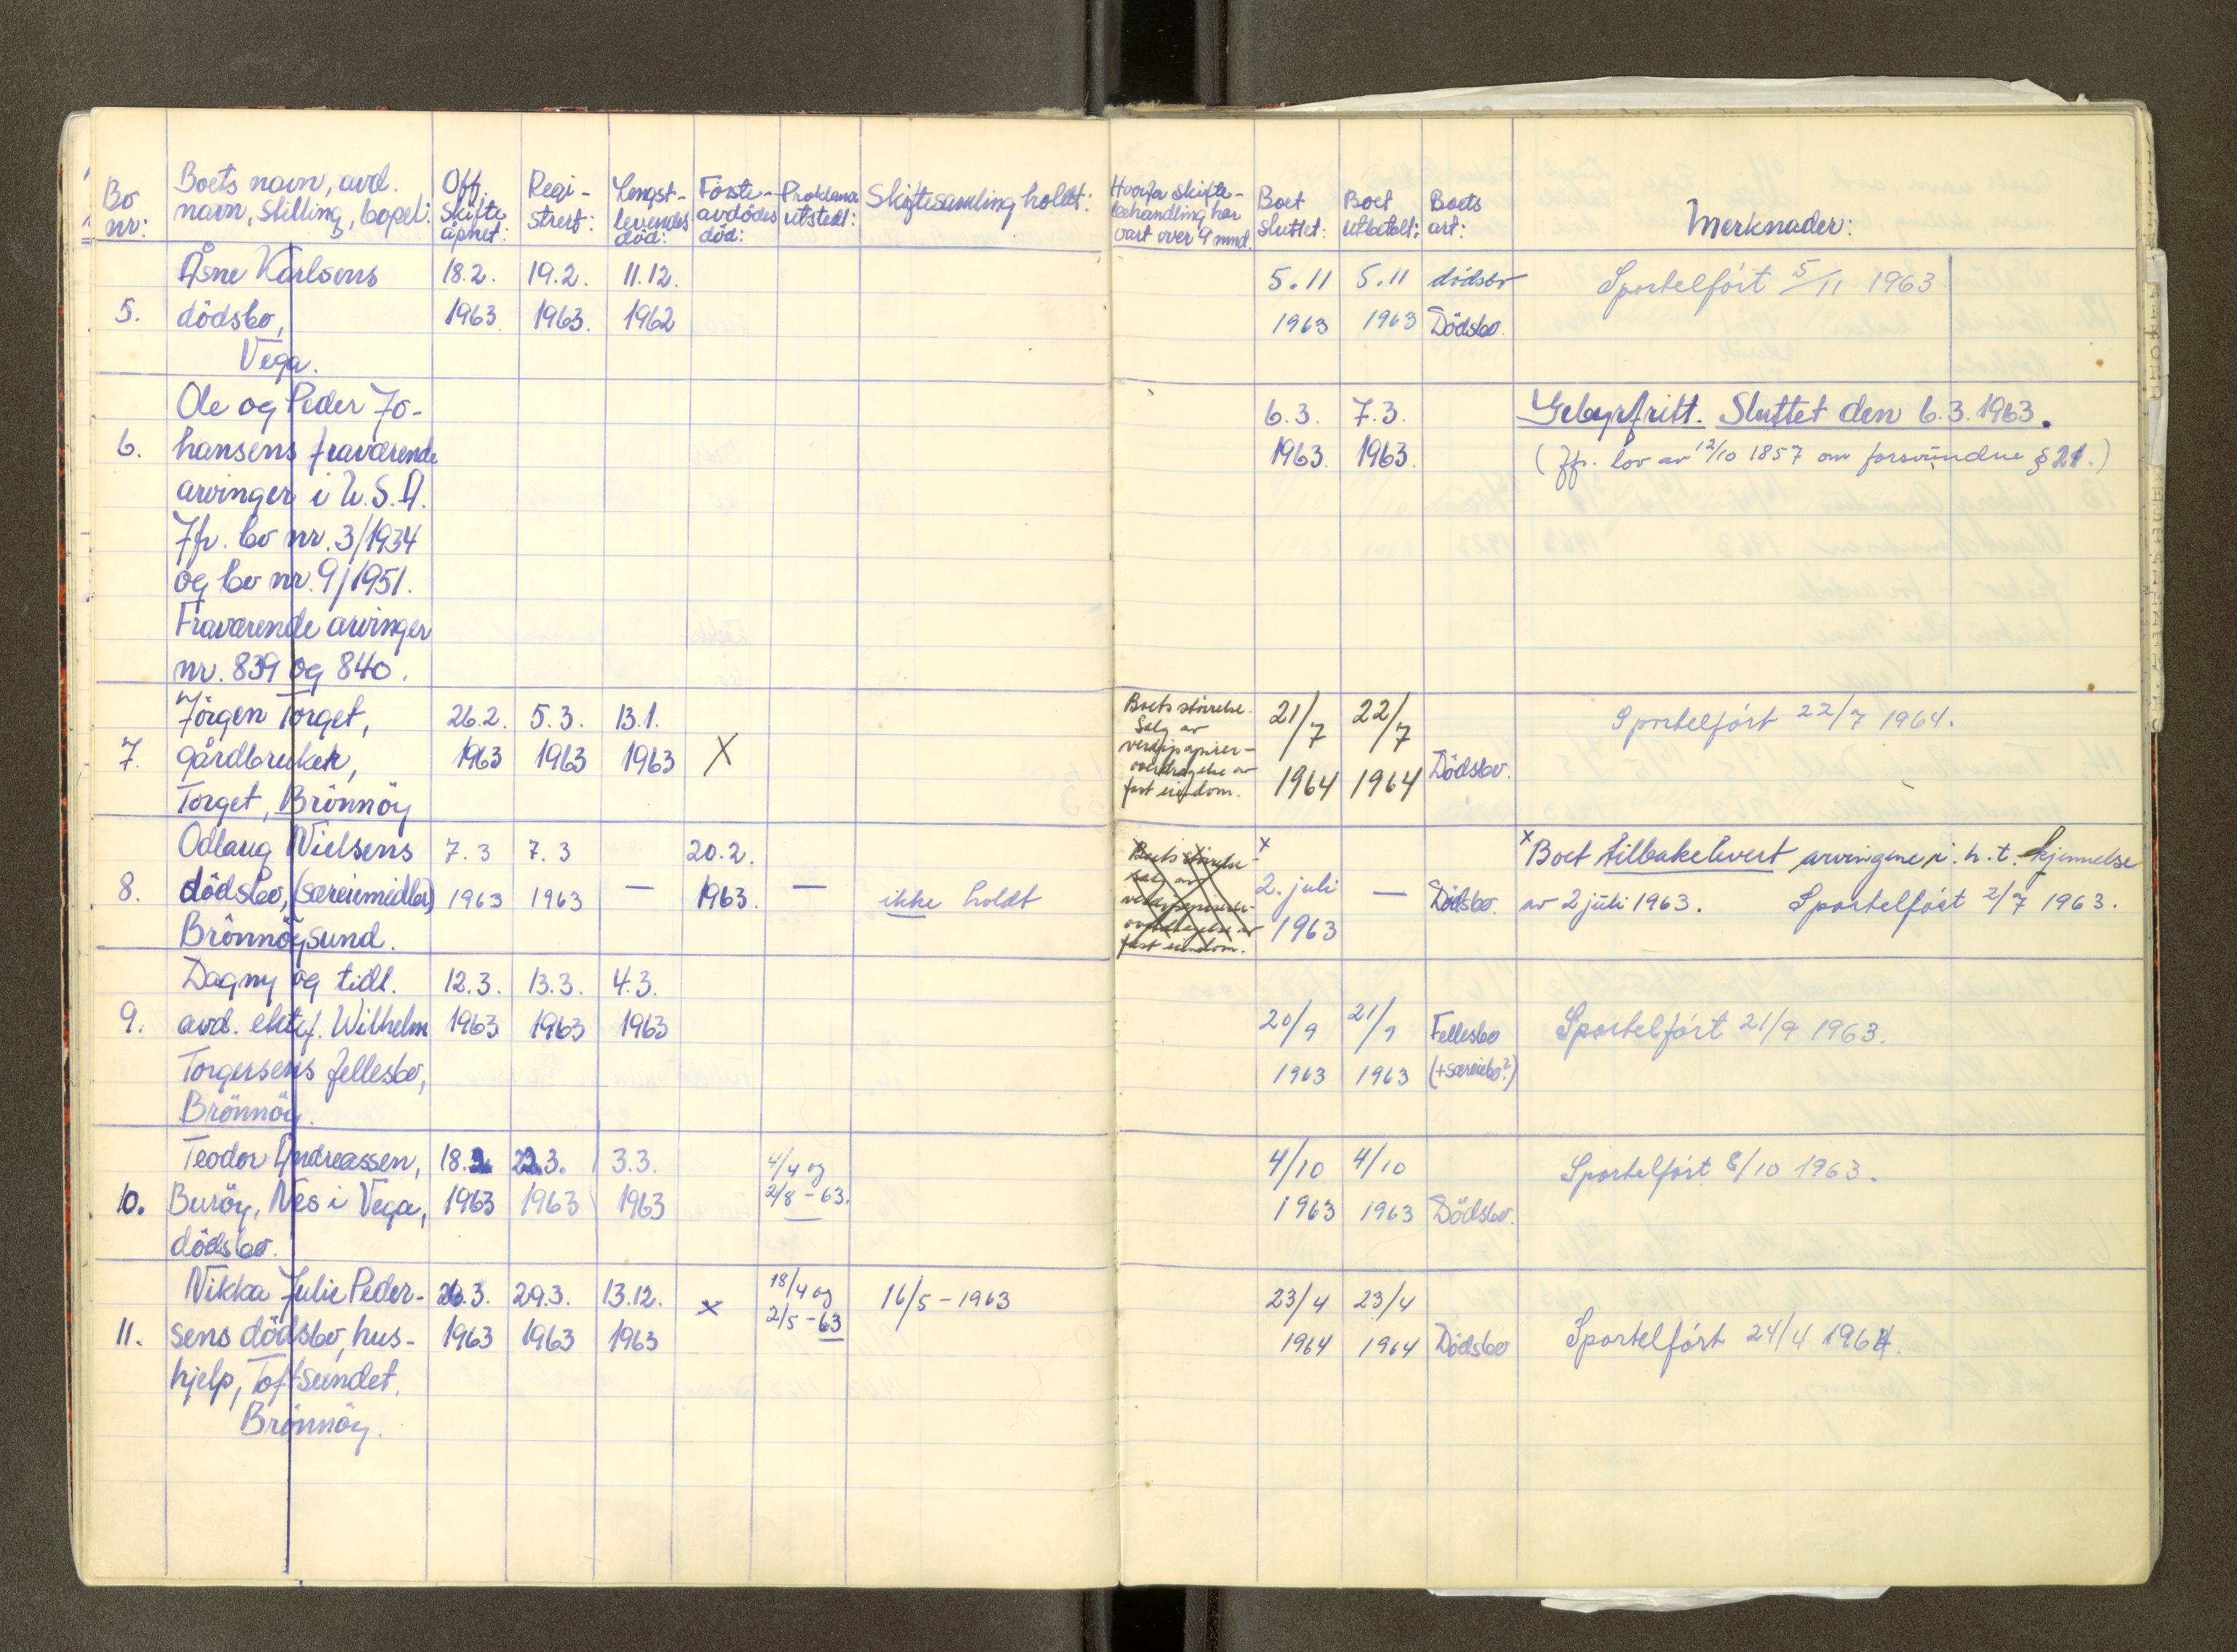 Bo nr:
Boets navn, avd. navn, stilling, bopel:
Off. skifte åpnet:
Regi-strert:
Lengst-levendes död:
Förste-avdödes död:
Proklama utstedt:
Skiftesamling holdt:
Hvorfor skifte-behandling har vart over 9 mnd.
Boet sluttet:
Boet utbetalt:
Boets art:
Merknader:
Åsne Karlsens 18.2. 19.2. 11.12. 5.11 5.11 dödsbo Sportelfört 5/11 1963
5. dödsbo, 1963 1963. 1962 1963 1963 Dödsbo.
Vega.
Ole og Peder Jo- 6.3. 7.3. Gebyrfritt. Sluttet den 6.3.1963.
6. hansens fraværende 1963. 1963. (Jfr. lov av 12/10 1857 om forsvundne § 21.)
arvinger i U.S.A.
Jfr. bo nr. 3/1934
og bo nr. 9/1951.
Fraværende arvinger
nr. 839 og 840.
Jörgen Torget, 26.2. 5.3. 13.1. Boets störrelse. 21/7 22/7 Sportelfört 22/7 1964.
Salg av
7. gårdbruker, 1963 1963 1963 X verdipapirer-
overdragelse av 1964 1964 Dödsbo.
Torget, Brönnöy fast eiendom.
Odlaug Nielsens 7.3 7.3 20.2. Boets störrelse- x x Boet tilbakelevert arvingene i. h. t. kjennelse
salg av
8. dödsbo, (særeiemidler) 1963 1963 — 1963. — ikke holdt verdipapirer- 2. juli — Dödsbo. av 2 juli 1963. Sportelfört 2/7 1963.
overdragelse av 1963
Brönnöysund. fast eiendom.
Dagny og tidl. 12.3. 13.3. 4.3.
9. avd. ektef. Wilhelm 1963 1963 1963 20/9 21/9 Fellesbo Sportelfört 21/9 1963.
Torgersens fellesbo, 1963 1963 (+særeiebo?)
Brönnöy.
Teodor Andreassen, 18.3. 22.3. 3.3. 4/4 og 4/10 4/10 Sportelfört 8/10 1963.
10. Buröy, Nes i Vega, 1963 1963 1963 2/8 - 63. 1963 1963 Dödsbo.
dödsbo.
Nikka Julie Peder- 26.3. 29.3. 13.12. x 18/4 og 16/5 - 1963 23/4 23/4
2/5 - 63
11. sens dödsbo, hus- 1963 1963 1963 1964 1964 Dödsbo Sportelfört 24/4 1964.
hjelp, Toftsundet.
Brönnöy.